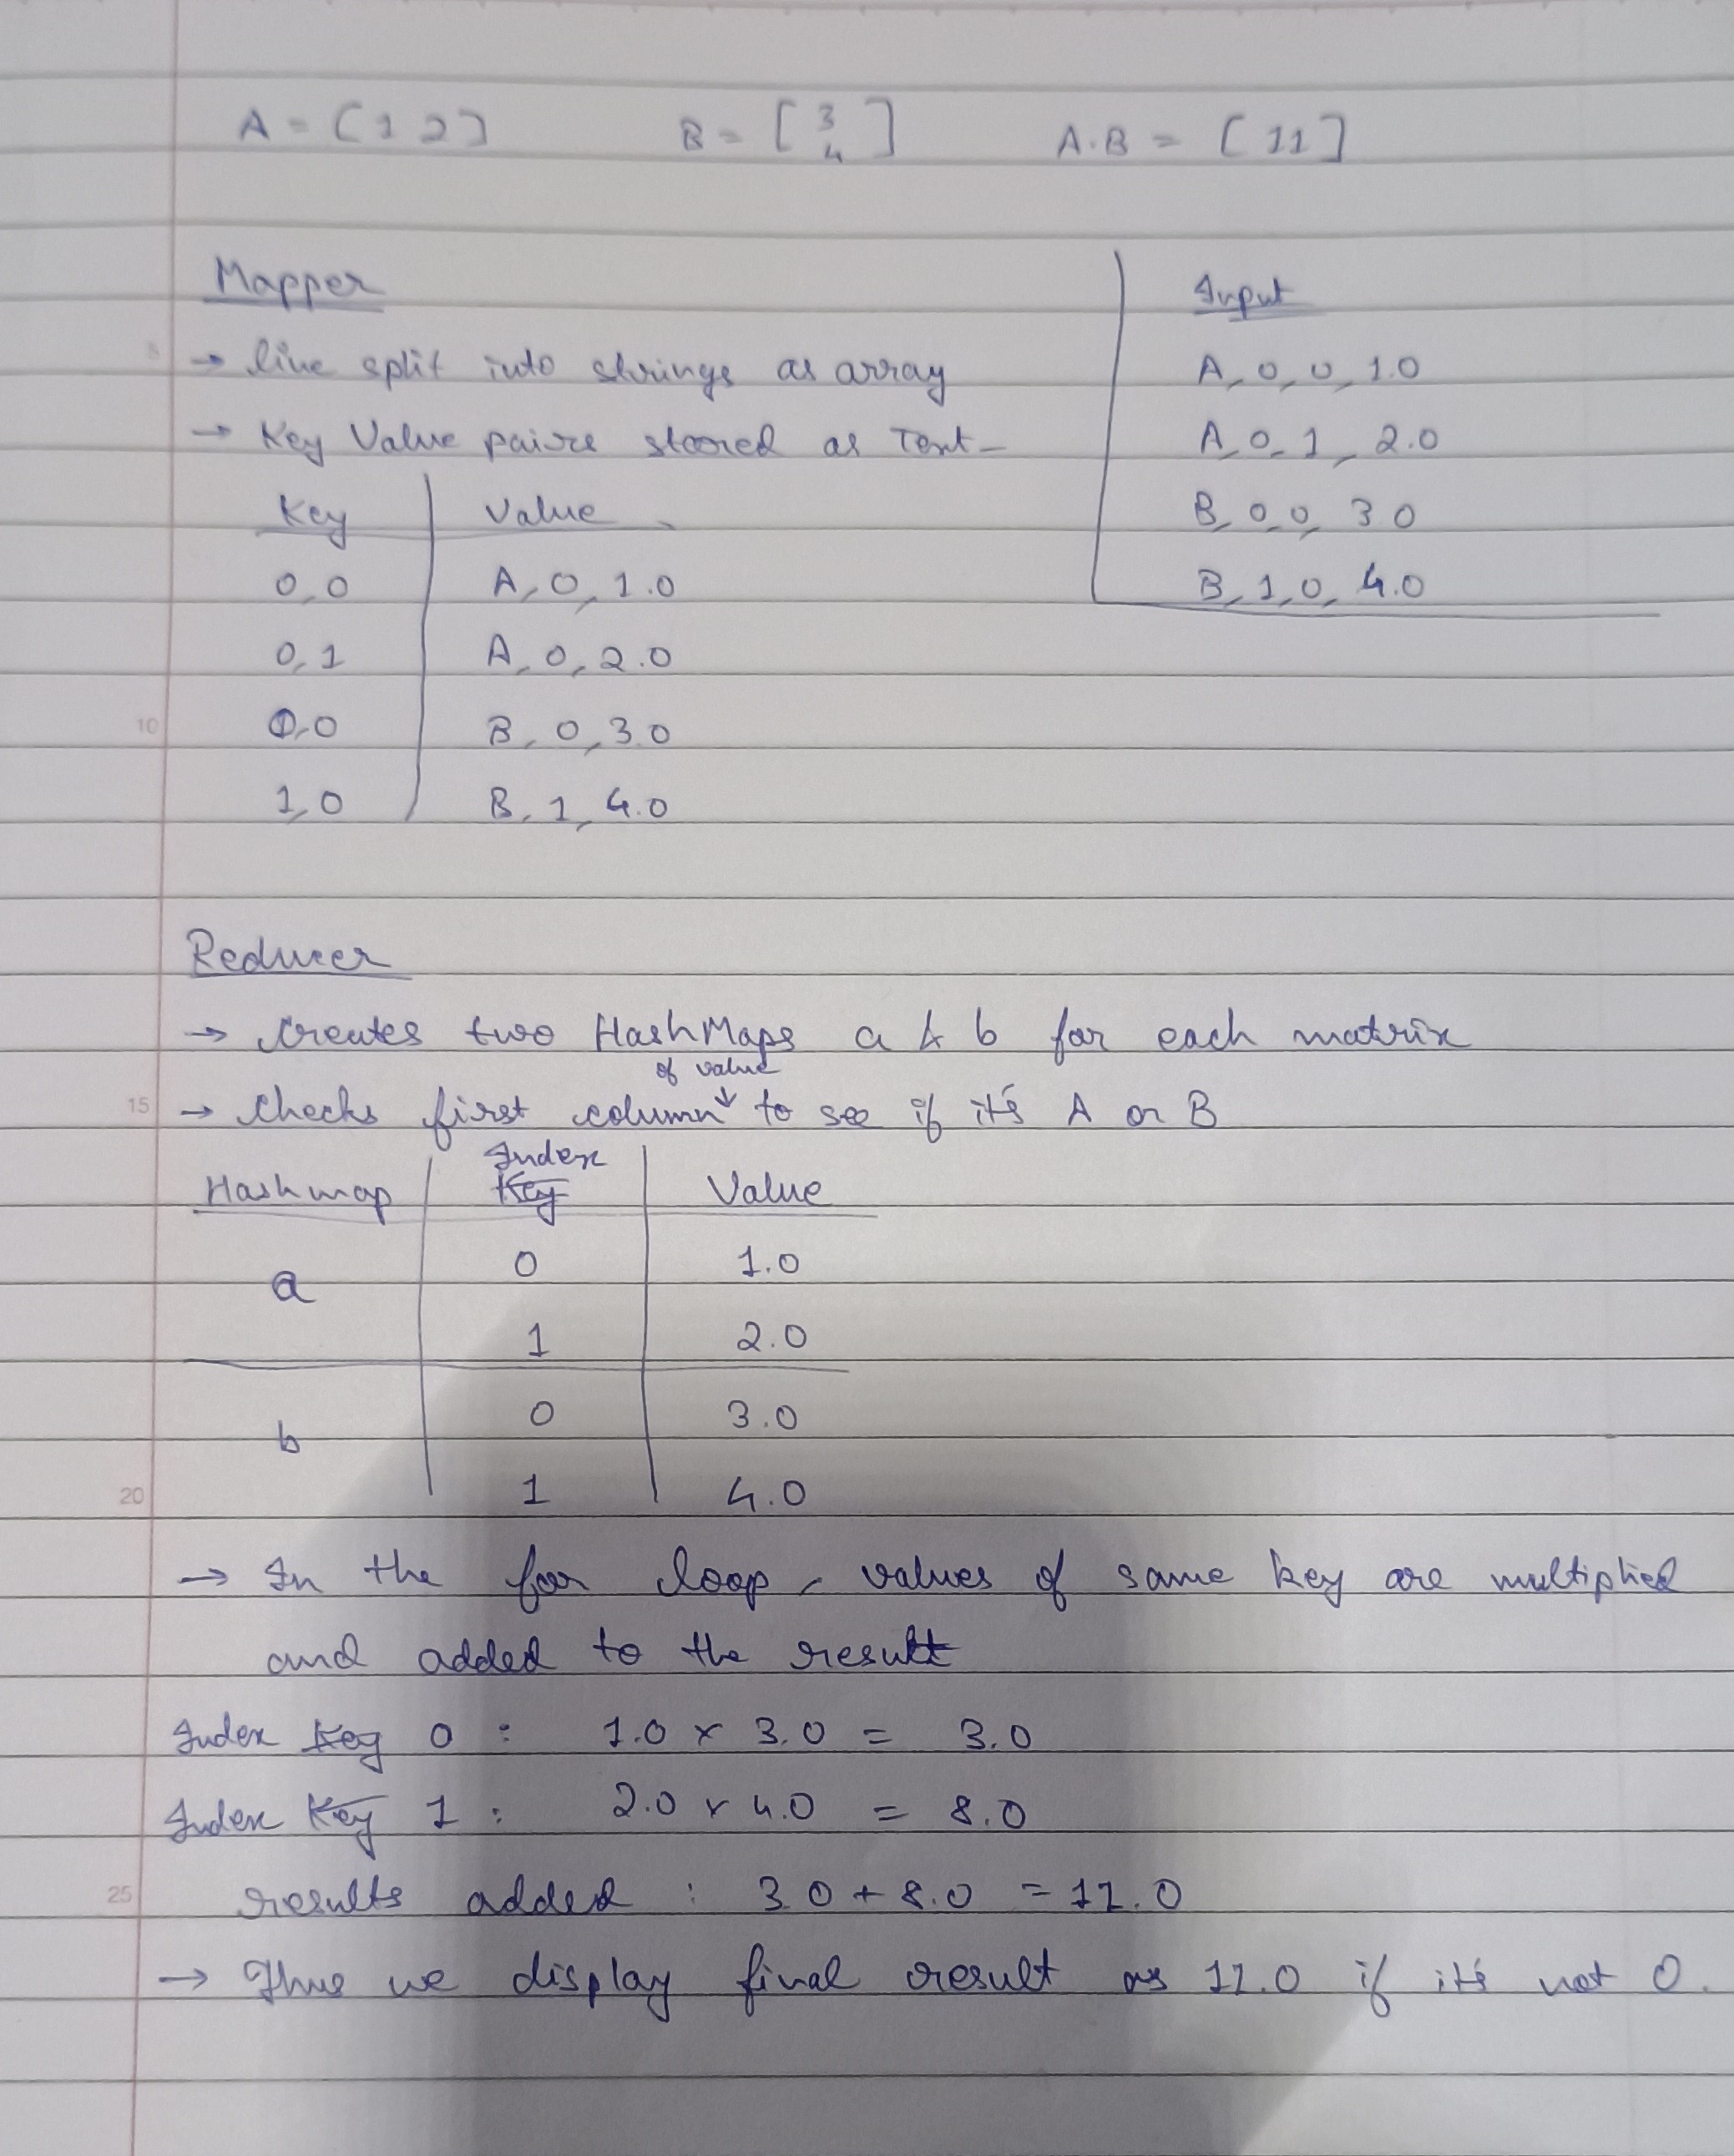 A = [1 2] B = [3 4] A.B = [11]
Mapper
→ line split into strings as array
→ Key Value pairs stored as Text
Key Value
0,0 A,0,1.0
0,1 A,0,2.0
0,0 B,0,3.0
1,0 B,1,4.0
Input
A,0,0,1.0
A,0,1,2.0
B,0,0,3.0
B,1,0,4.0
Reducer
→ Creates two HashMaps a & b for each matrix
of value
→ Checks first column ↓ to see if it's A or B
Index
Hashmap Key Value
a 0 1.0
1 2.0
b 0 3.0
1 4.0
→ In the for loop, values of same key are multiplied
and added to the result
Index Key 0 : 1.0 x 3.0 = 3.0
Index Key 1 : 2.0 x 4.0 = 8.0
results added : 3.0 + 8.0 = 11.0
→ Thus we display final result as 11.0 if it's not 0.
5
10
15
20
25